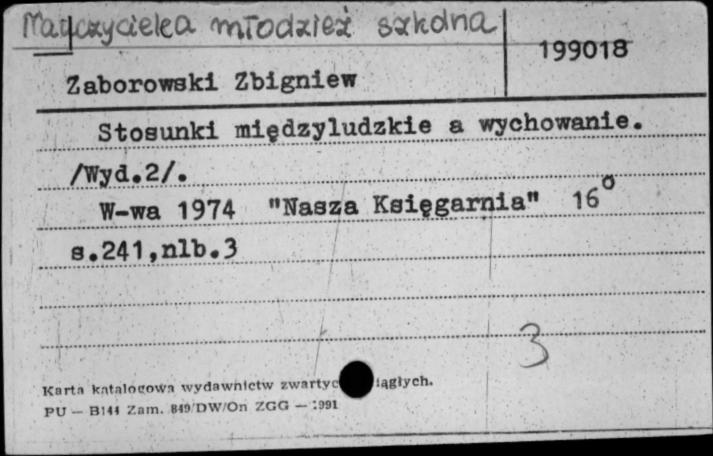 młodzież szkolna
199018
Zaborowski Zbigniew
Stosunki międzyludzkie a wychowanie.
/Wyd.2/.
W-wa 1974 "Nasza Księgarnia" 16°
s.241,nlb.3
3
Karta katalogowa wydawnictw zwartyc iągłych.
PU — B144 Zam. 849/DW/On ZGG — 1991